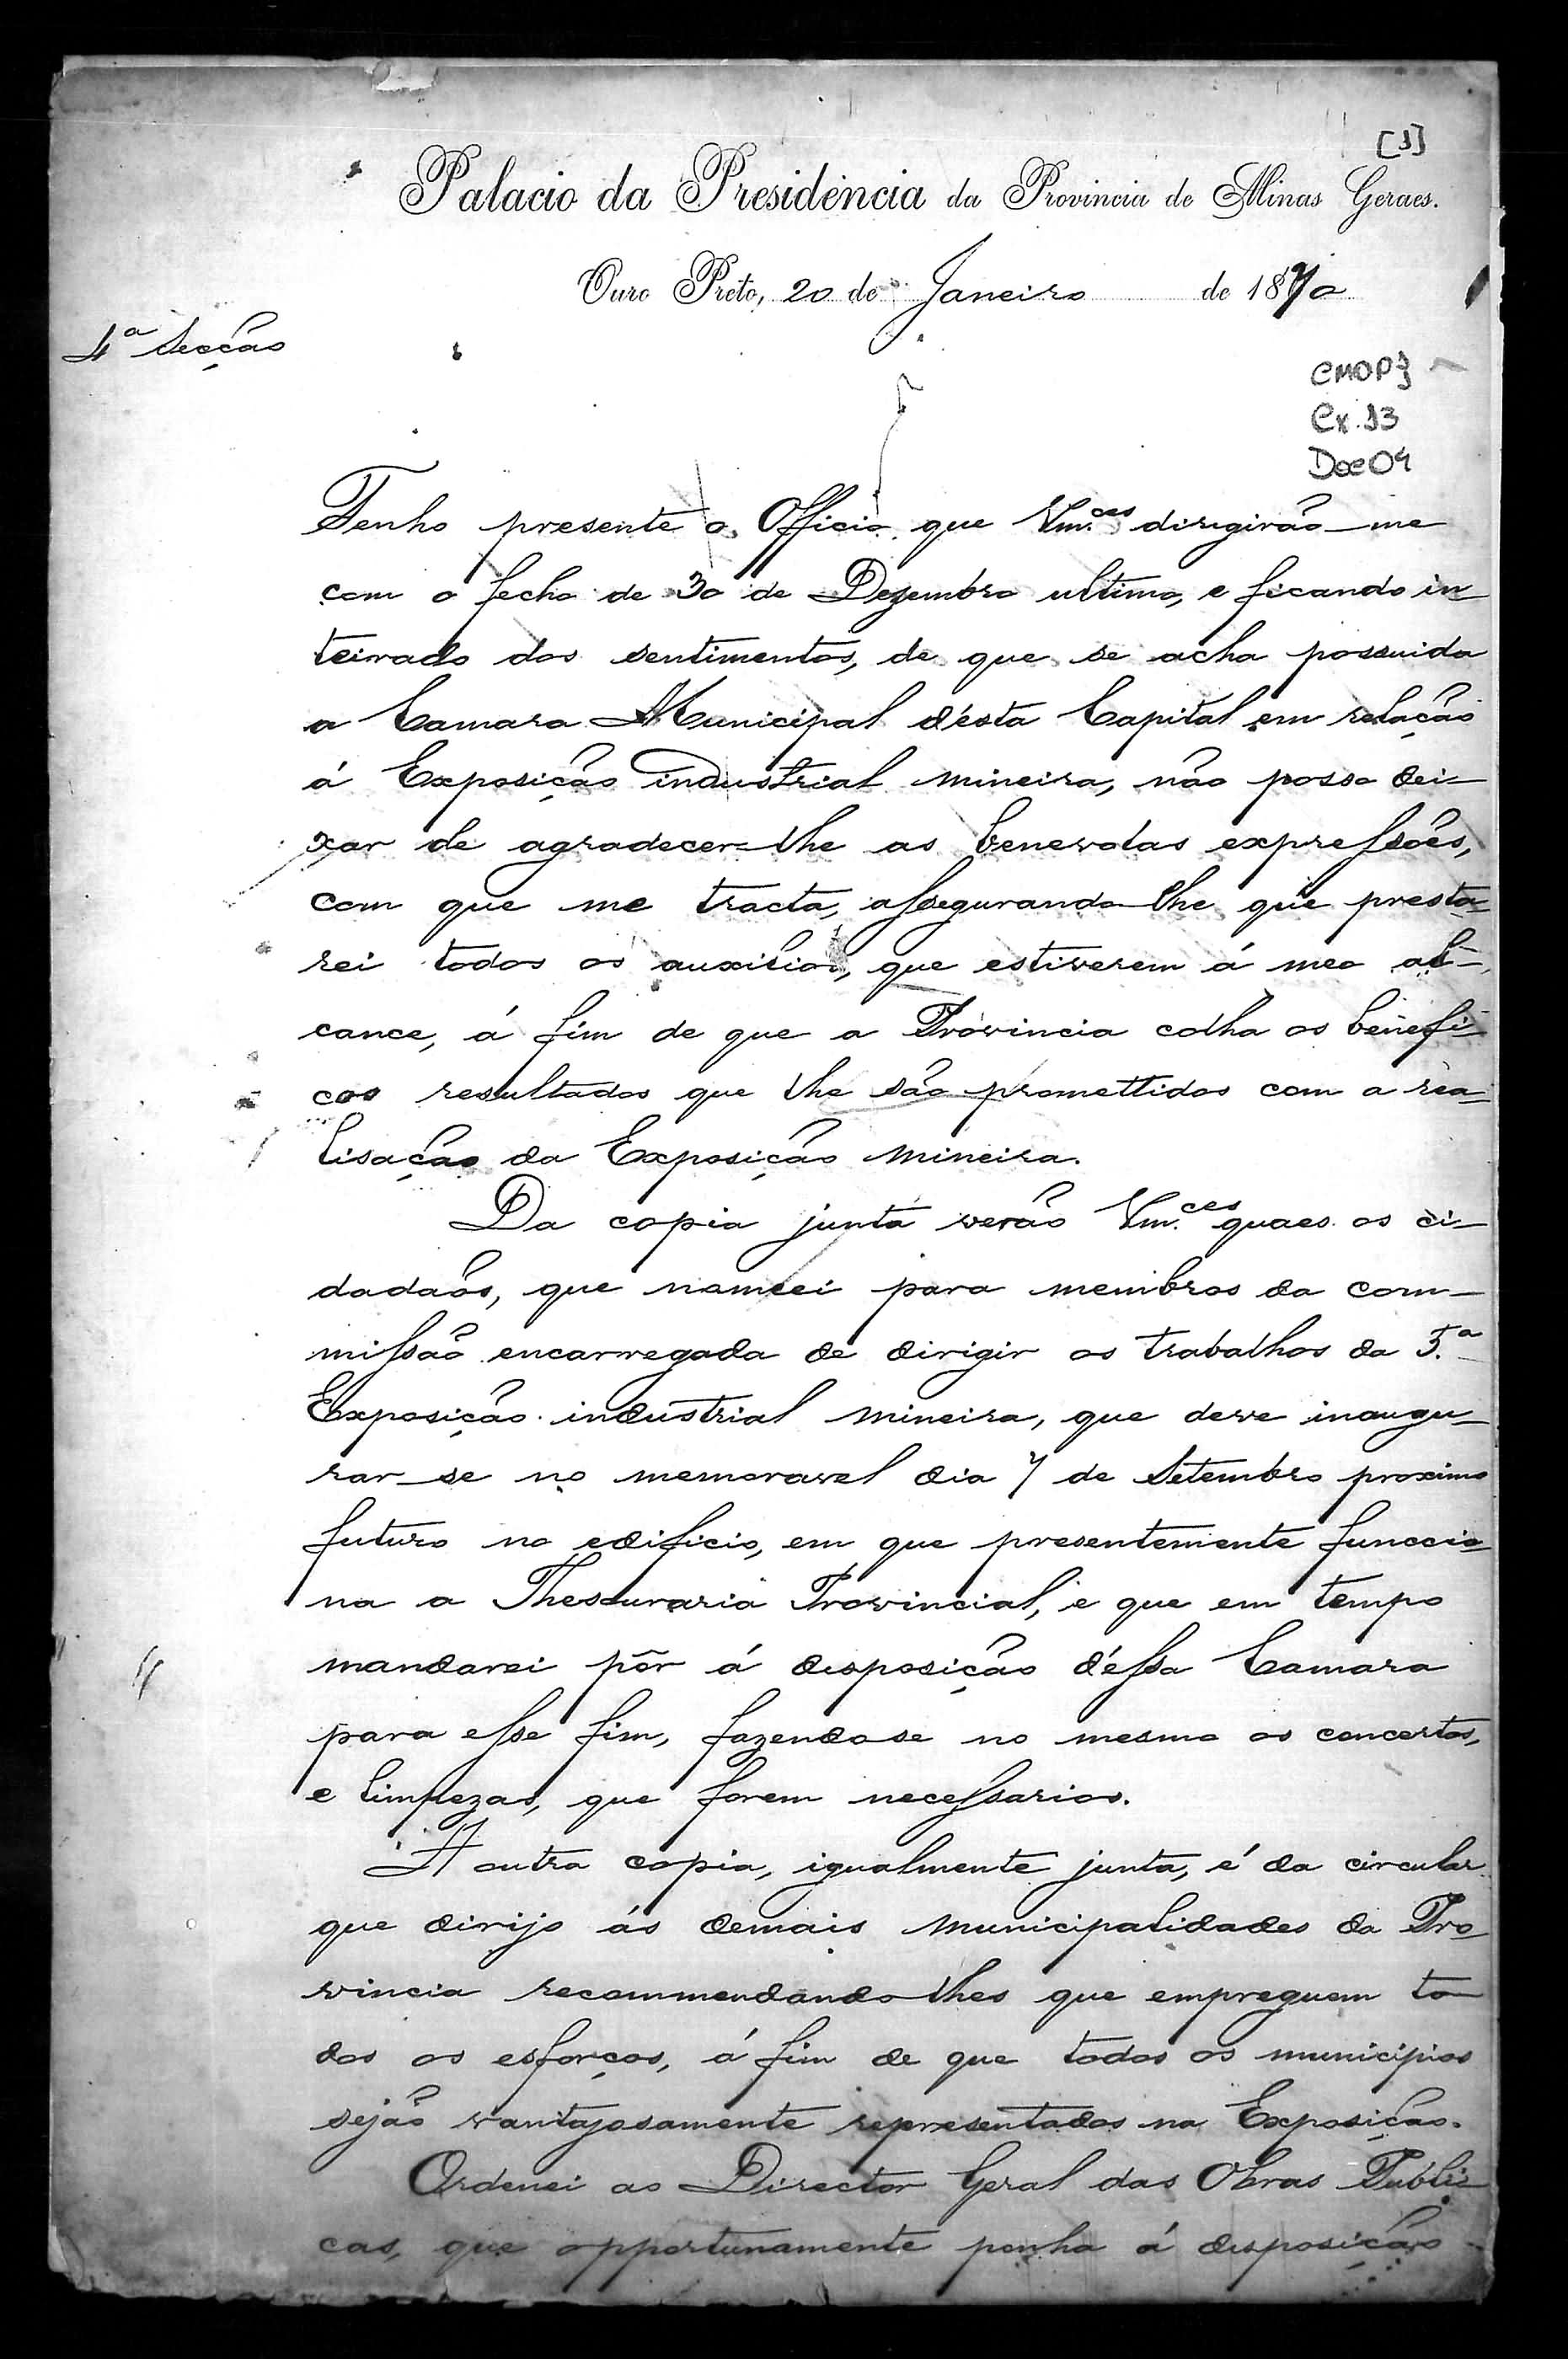 [1]
Palacio da Presidencia da Provincia de Minas Geraes.
Ouro Preto, 20 de Janeiro de 1870
4ª Secção
CMOP
Cx. 13
Doc 04
Tenho presente o Officio que Vm.ces dirigirão-me
com o fecho de 30 de Dezembro ultimo, e ficando in-
teirado dos sentimentos, de que se acha possuida
a Camara Municipal d'ésta Capital em relação
á Exposição industrial mineira, não posso dei-
xar de agradecer-lhe as benevolas expressões,
com que me tracta, assegurando-lhe que presta-
rei todos os auxilios, que estiverem á meo al-
cance, á fim de que a Provincia colha os benefi-
cos resultados que lhe são promettidos com a rea-
lisação da Exposição mineira.
Da copia junta verão Vm.ces quaes os ci-
dadãos, que nomeei para membros da com-
missão encarregada de dirigir os trabalhos da 5.ª
Exposição industrial mineira, que deve inaugu-
rar-se no memoravel dia 7 de Setembro proximo
futuro no edificio, em que presentemente funccio-
na a Thesouraria Provincial, e que em tempo
mandarei pôr á disposição d'éssa Camara
para esse fim, fazendo-se no mesmo os concertos,
e limpezas, que forem necessarios.
A outra copia, igualmente junta, é da circular
que dirijo ás demais municipalidades da Pro-
vincia recommendando-lhes que empreguem to-
dos os esforços, á fim de que todos os municipios
sejão vantajosamente representados na Exposição.
Ordenei ao Director Geral das Obras Publi-
cas, que opportunamente ponha á disposição